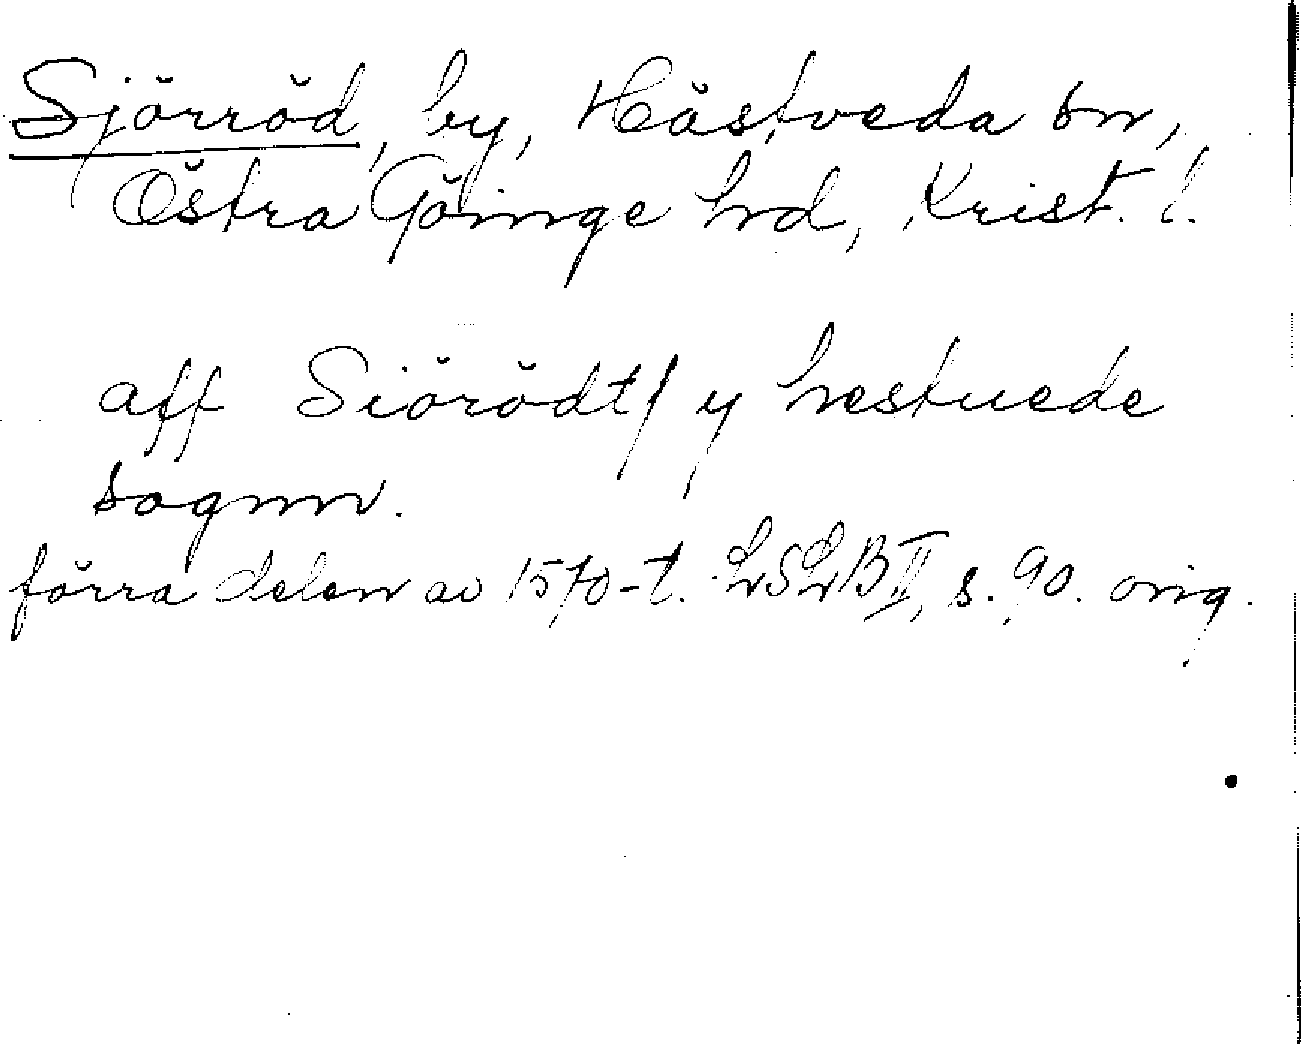 Sjörröd, by, Hästveda sn,
Östra Göinge hd, Krist. l.
aff Siörödt/ y hestuede
sognn.
förra delen av 1570-t. LSLB II, s. 90. orig.